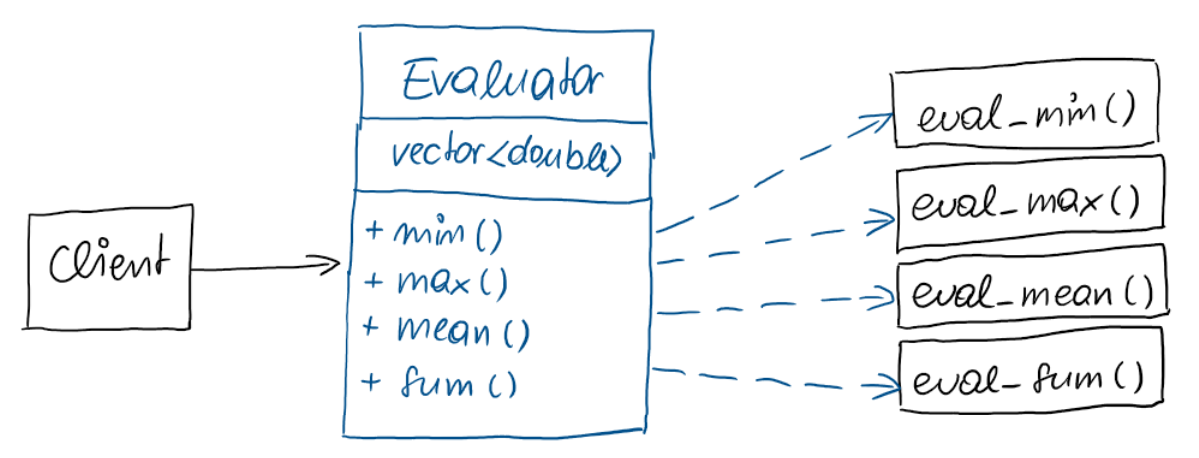 Client
Evaluator
vector<double>
+ min()
+ max()
+ mean()
+ sum()
eval_min()
eval_max()
eval_mean()
eval_sum()